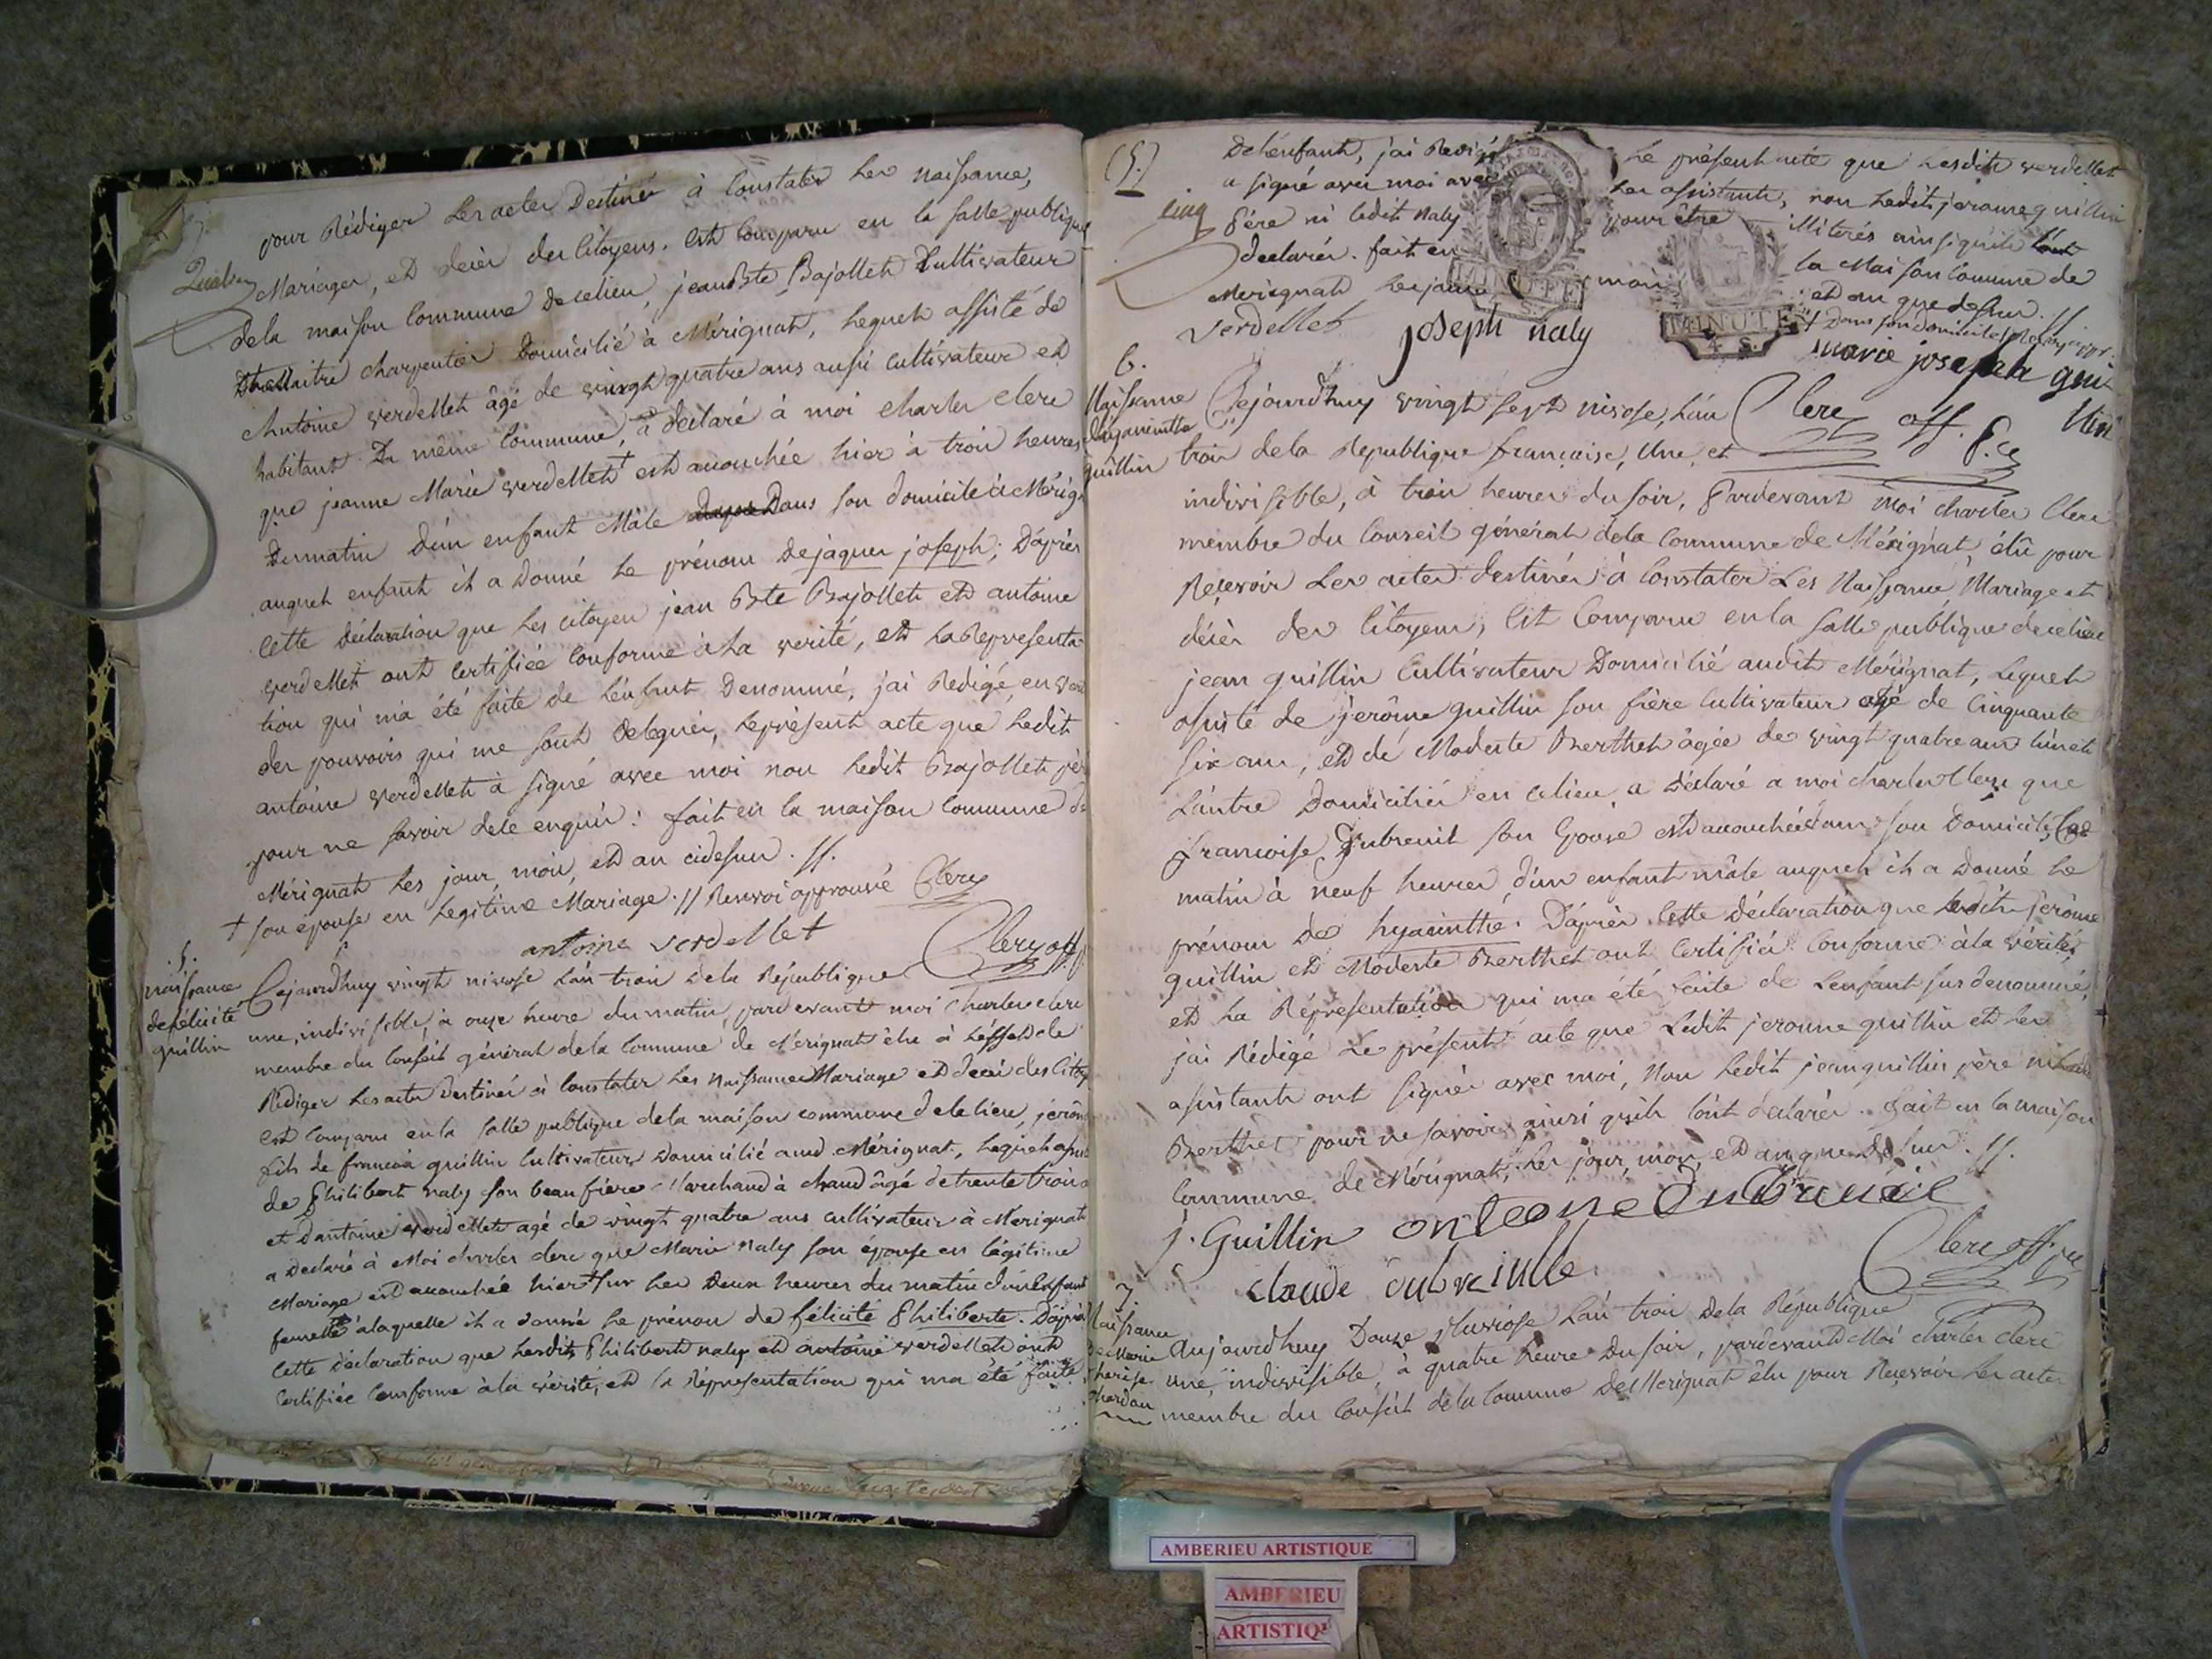 quatre
pour Rédiger les actes Destinés à Constater les naissances,
Mariages, et décès des Citoyens. Est Comparu en la salle publique
de la maison Commune de ce lieu, jean Bte Bajollet Cultivateur
Maitre charpentier Domicilié à Mérignat, lequel assisté de
Antoine verdellet âgé de vingt quatre ans aussi cultivateur et
habitant Du même Commune, a declaré à moi charles clerc
que jeanne Marie verdellet + est accouchée hier à trois heures
Du matin d'un enfant Mâle Dans son domicile à Mérig
auquel enfant il a Donné le prénom de jaques joseph; D'après
cette déclaration que les citoyen jean Bte Bajollet et antoine
verdellet ont Certifiée Conforme à la verité, et la Représenta-
tion qui m'a été faite de l'enfant Denommé, j'ai Redigé, en vertu
des pouvoirs qui me sont délégués, le présent acte que ledit
antoine verdellet à signé avec moi non ledit Bajollet pèr
pour ne savoir de ce enquis: fait en la maison Commune de
Mérignat les jour, mois, et an ci dessus. //.
+ son épouse en Legitime Mariage. // Renvoi approuvé Clerc
antoine verdellet Clerc off. p.
5.
naissance
de félicité
guillin
Cejourd'huy vingt nivose l'an trois de la République
une, indivisible, à onze heure du matin, pardevant moi Charles clerc
membre du Conseil général de la Commune de Mérignat élu à l'effet de
Rédiger les actes Destinés à Constater les Naissances Mariage et Décès des Citoy
est Comparu en la salle publique de la maison commune de ce lieu, jerôm
fils de francois guillin Cultivateur Domicilié aud. Mérignat, lequel assisté
de Philibert naly son beau frère Marchand à chaud âgé de trente trois a
et d'antoine verdellet agé de vingt quatre ans cultivateur à Merignat
a Declaré à Moi charles clerc que Marie naly son épouse en légitime
Mariage est accouchée hier + sur les Deux heures du matin d'un enfant
femelle à laquelle il a donné le prénom de félicité Philiberte. D'après
cette déclaration que lesdits Philibert naly et antoine verdellet ont
certifiée Conforme à la vérité, et la Réprésentation qui m'a été faite
(5.)
cinq
De l'enfant, j'ai Redigé le présent acte que lesdits verdellet
a signé avec moi avec les assistants, non ledit jerome guillin
père ni ledit naly pour être illiterés ainsi qu'ils l'ont
declarés. fait en la Maison Commune de
Merignat les jour, mois, et an que dessus. //.
+ Dans son domicile
MINUTE
MINUTE
4 S.
verdellet joseph naly marie joseph gui
llin
Clerc off. p.
6.
Naissance
d'hyacinthe
guillin
Cejourd'huy vingt sept nivose, l'an
trois de la Republique française, Une, et
indivisible, à trois heures du soir, Pardevant moi Charles Clerc
membre du Conseil général de la Commune de Mérignat, élû pour
Recevoir Les actes destinés à Constater Les Naissance, Mariage et
décès des Citoyens, Est Comparu en la salle publique de ce lieu
jean guillin Cultivateur Domicilié audit Mérignat, Lequel
assisté de jerôme guillin son frère Cultivateur agé de Cinquante
six ans, et de Modeste Berthet âgée de vingt quatre ans l'un et
L'autre Domiciliés en ce lieu, a déclaré a moi charles Clerc que
francoise Dubreuil son Epouse est accouchée dans son Domicile, Ce
matin à neuf heures, d'un enfant mâle auquel il a Donné le
prénom de hyacinthe. D'après Cette déclaration que ledit jerôme
guillin et Modeste Berthet ont Certifiée Conforme à la vérité,
et La Réprésentation qui m'a été faite de L'enfant sus denommé,
j'ai Rédigé Le présent acte que Ledit jerome guillin et les
assistants ont signés avec moi, Non ledit jean guillin père ni
Berthet pour ne savoir, ainsi qu'ils l'ont declarés. fait en la maison
Commune de Mérignat, les jour, mois, et an que dessus. //.
j. Guillin onteone Dubreuil
claude dubreiulle Clerc off. p.
7.
Naissance
de Marie
therese
Aujourd'huy Douze pluviose l'an trois de la République
une, indivisible, à quatre heure Du soir, pardevant Moi charles Clerc
membre du Conseil de la Commune de Merignat élu pour Recevoir les actes
AMBERIEU ARTISTIQUE
AMBERIEU
ARTISTIQ